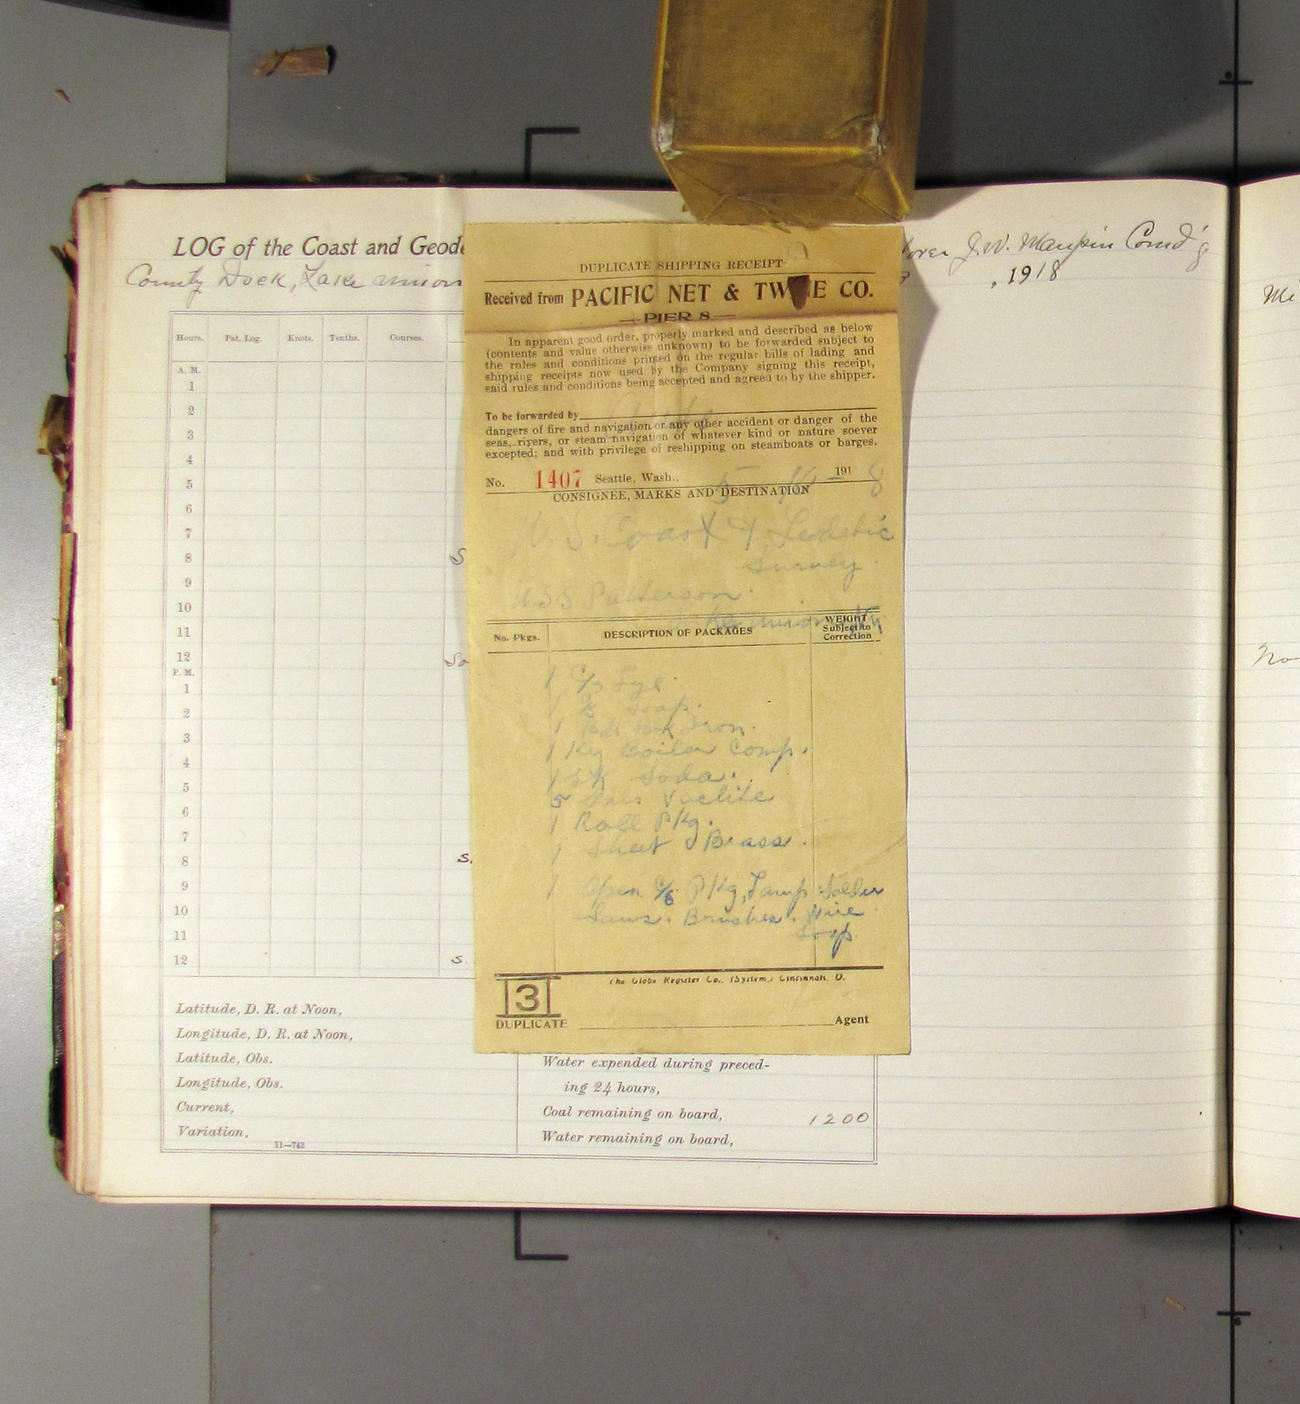 LOG of the Coast and Geode
J. W. Maupin Comd'g
County Dock, Lake Union
, 1918
Hours. Pat. Log. Knots. Tenths. Courses.
A. M.
1
2
3
4
5
6
7
8 S
9
10
11
12 So
P. M.
1
2
3
4
5
6
7
8 S.
9
10
11
12 S.
Latitude, D. R. at Noon,
Longitude, D. R. at Noon,
Latitude, Obs.
Longitude, Obs.
Current,
Variation,
11—743
DUPLICATE SHIPPING RECEIPT
Received from PACIFIC NET & TW NE CO.
— PIER 8 —
In apparent good order, properly marked and described as below
(contents and value otherwise unknown) to be forwarded subject to
the rules and conditions printed on the regular bills of lading and
shipping receipts now used by the Company signing this receipt,
said rules and conditions being accepted and agreed to by the shipper.
To be forwarded by
dangers of fire and navigation or any other accident or danger of the
seas, rivers, or steam navigation of whatever kind or nature soever
excepted; and with privilege of reshipping on steamboats or barges.
No. 1407 Seattle, Wash., 191 8
CONSIGNEE, MARKS AND DESTINATION
U. S. Coast & Geodetic
Survey.
U S S Patterson.
Lake Union
No. Pkgs. DESCRIPTION OF PACKAGES WEIGHT Subject to Correction
1 C/s Lye.
1 Soap.
1 Iron.
1 Keg Boiler Comp.
1 Sk Soda.
5
1 Roll Pkg.
1 Sheet Brass.
1 Open C/s Pkg, Lamp Solder
Saws. Brushes. Wire
Soap.
The Globe Register Co., (System,) Cincinnati, O.
3
DUPLICATE Agent
Water expended during preced-
ing 24 hours,
Coal remaining on board, 1200
Water remaining on board,
Mi
No
6
6